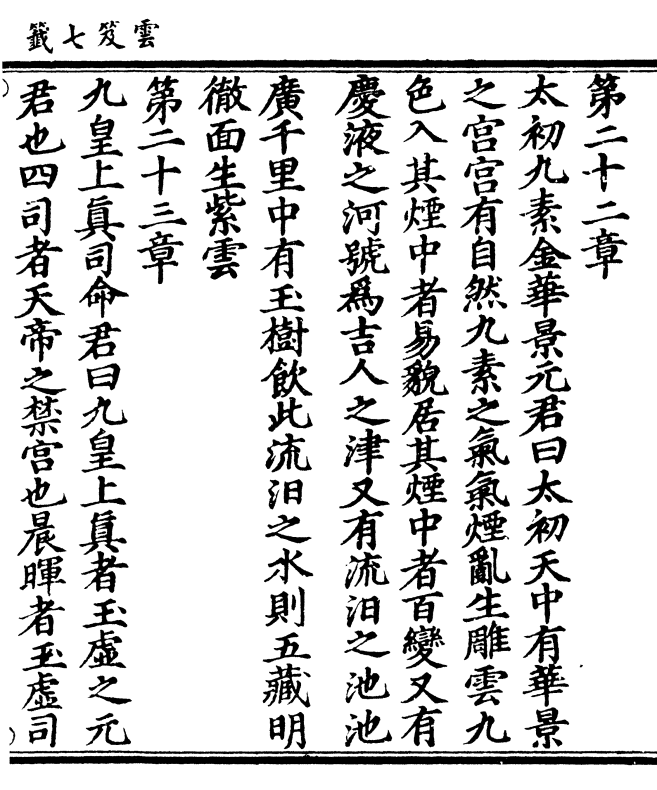 雲笈七籤
第二十二章
太初九素金華景元君曰太初天中有華景
之宮宮有自然九素之氣氣煙亂生雕雲九
色入其煙中者易貌居其煙中者百變又有
慶液之河號爲吉人之津又有流汨之池池
廣千里中有玉樹飲此流汨之水則五藏明
徹面生紫雲
第二十三章
九皇上眞司命君曰九皇上眞者玉虛之元
君也四司者天帝之禁宮也晨暉者玉虛司